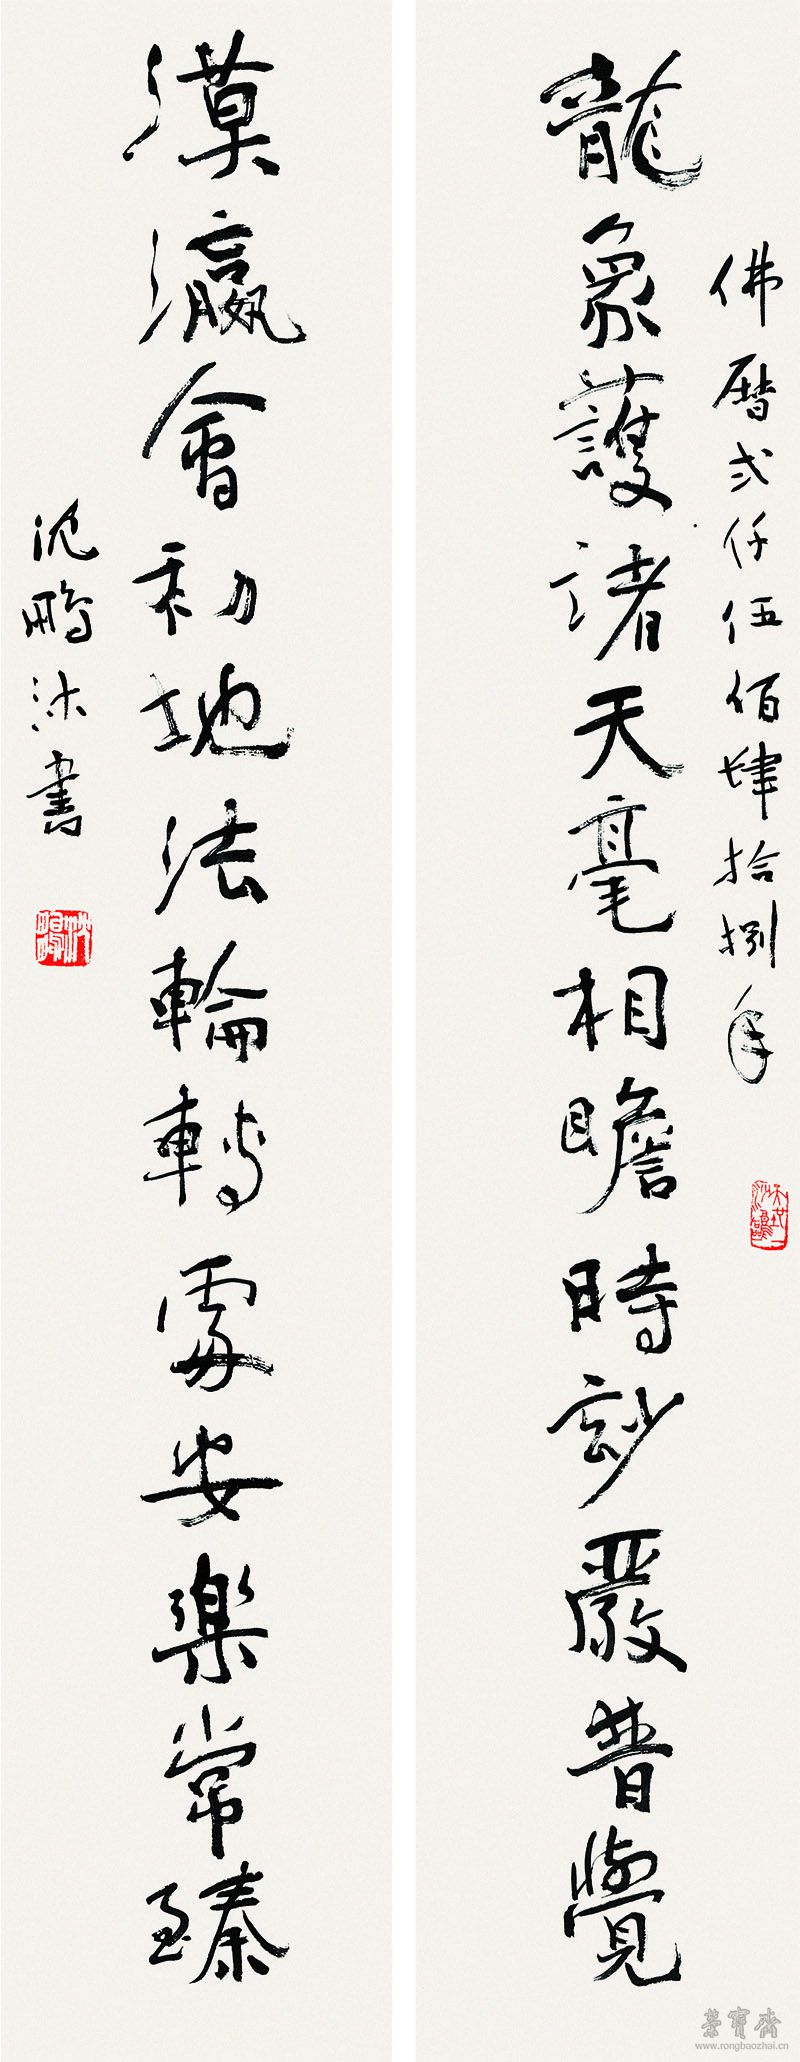 佛曆弍仟伍佰肆拾捌年
龍象護諸天毫相瞻時玅嚴普覺
漢瀛會初地法輪轉處安樂常臻
沈鵬沐書
榮寶齋
www.rongbaozhai.cn